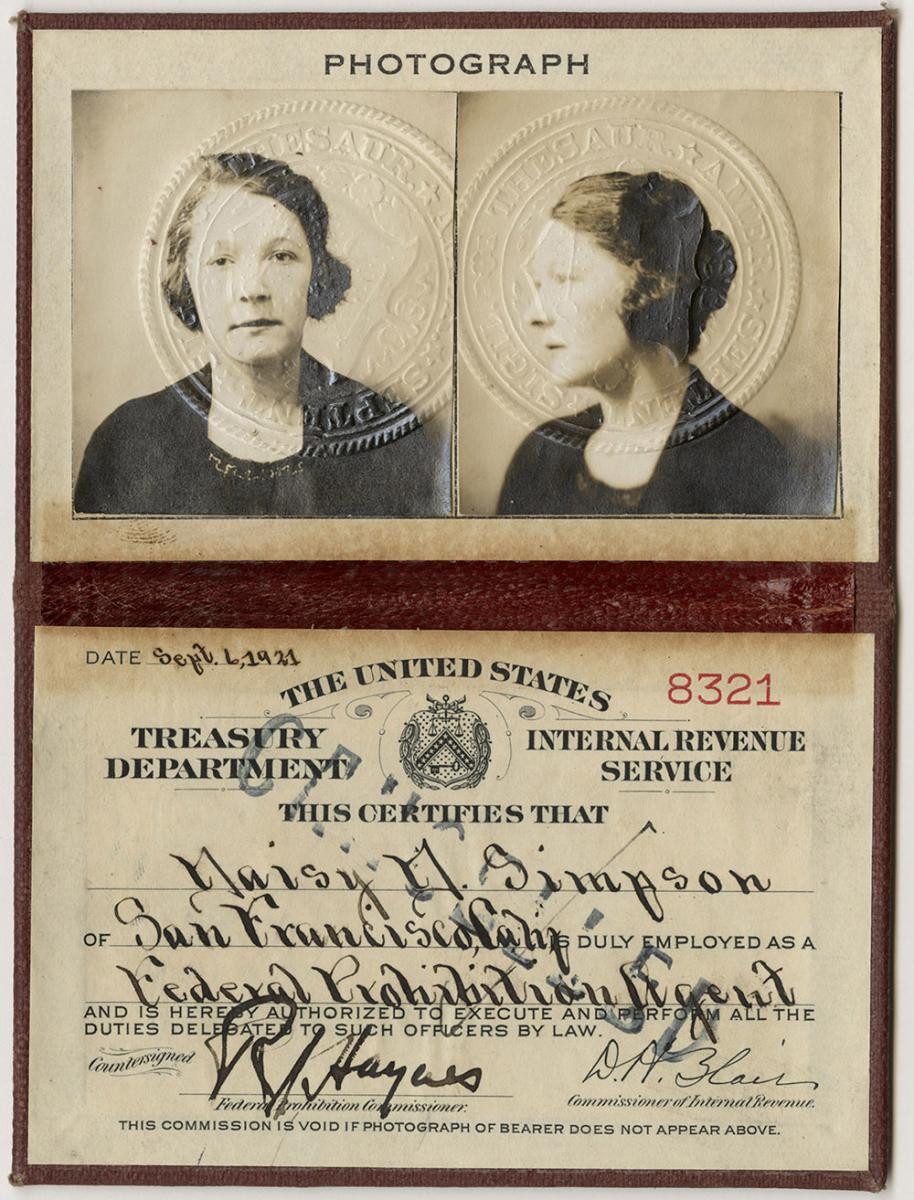 PHOTOGRAPH
THESAUR. ★
SIGIL THESAUR. ★ AMER. ★ SEPTENT.
DATE Sept. 6, 1921
THE UNITED STATES
8321
TREASURY DEPARTMENT
INTERNAL REVENUE SERVICE
THIS CERTIFIES THAT
Daisy D. Simpson
OF San Francisco, Calif. IS DULY EMPLOYED AS A
Federal Prohibition Agent
AND IS HEREBY AUTHORIZED TO EXECUTE AND PERFORM ALL THE
DUTIES DELEGATED TO SUCH OFFICERS BY LAW.
Countersigned
R. A. Haynes
D. H. Blair
Federal Prohibition Commissioner.
Commissioner of Internal Revenue.
THIS COMMISSION IS VOID IF PHOTOGRAPH OF BEARER DOES NOT APPEAR ABOVE.